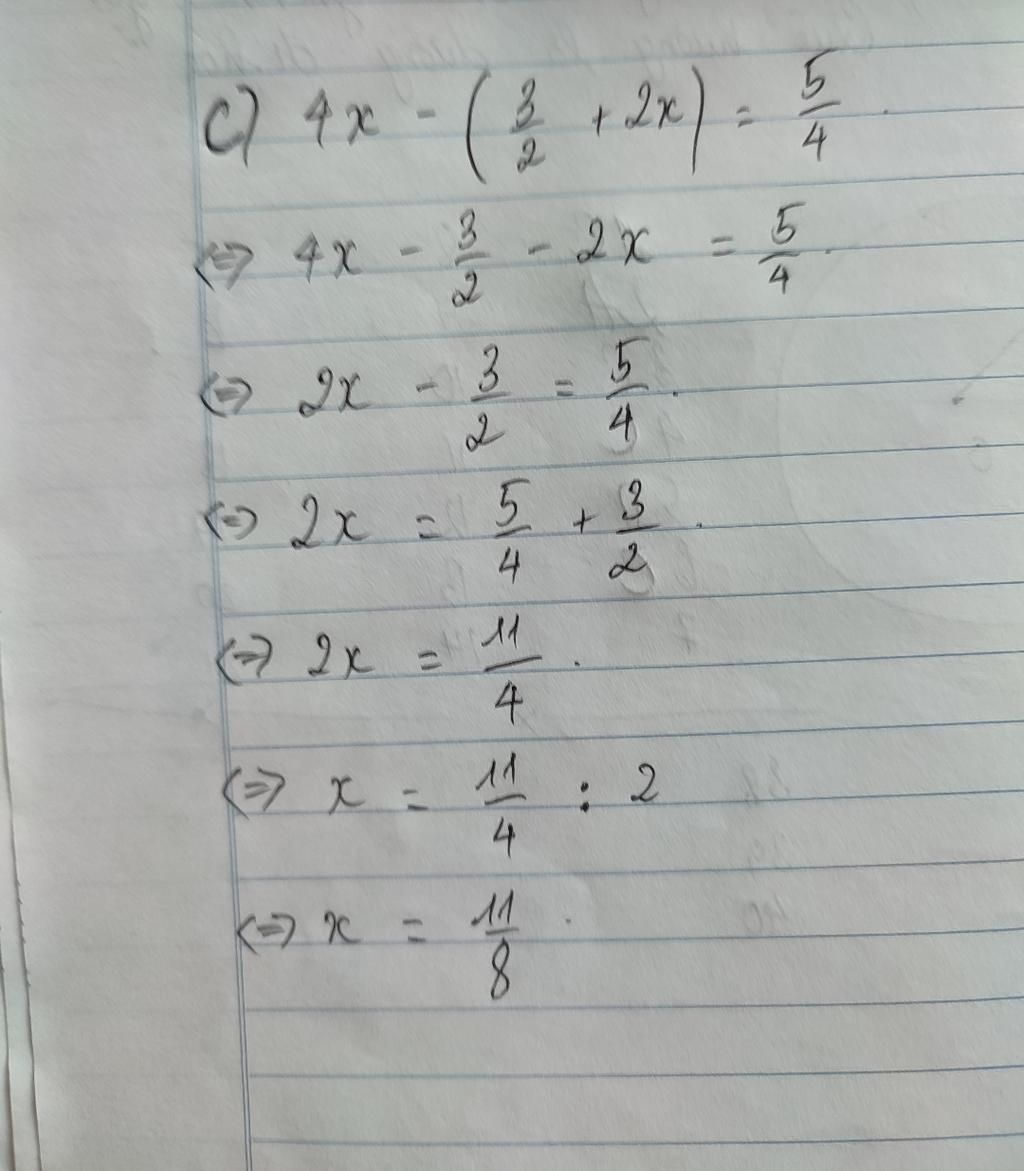 c) 4x - (3/2 + 2x) = 5/4.
⇔ 4x - 3/2 - 2x = 5/4.
⇔ 2x - 3/2 = 5/4.
⇔ 2x = 5/4 + 3/2.
⇔ 2x = 11/4.
⇔ x = 11/4 : 2
⇔ x = 11/8.